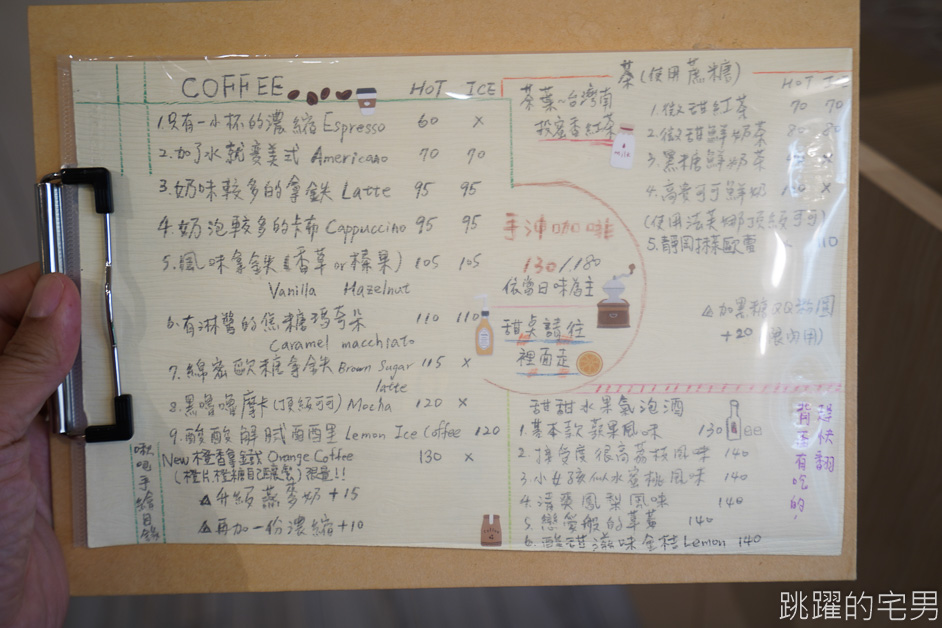 COFFEE HOT ICE
1.只有一小杯的濃縮 Espresso 60 ×
2.加了水就變美式 Americano 70 70
3.奶味較多的拿鉄 Latte 95 95
4.奶泡較多的卡布 Cappuccino 95 95
5.風味拿鉄(香草or榛果) 105 105
Vanilla Hazelnut
6.有淋醬的焦糖瑪奇朵 110 110
Caramel macchiato
7.綿密歐糖拿鉄 Brown Sugar latte 115 ×
8.黑嚕嚕摩卡(頂級可可) Mocha 120 ×
9.酸酸解膩西西里 Lemon Ice Coffee 120
New 橙香拿鉄 Orange Coffee 130 ×
(橙片橙糖自己釀製)限量!!
△升級燕麥奶 +15
△再加一份濃縮 +10
啾嗚手繪目錄
茶葉~台灣南投蜜香紅茶
Milk
手沖咖啡
130/180
依當日味為主
甜桌請往
裡面走
茶(使用蔗糖) HOT ICE
1.微甜紅茶 70 70
2.微甜鮮奶茶 80 80
3.黑糖鮮奶茶 ×
4.高貴可可鮮奶 ×
(使用法芙娜頂級可可)
5.靜岡抹茶歐蕾 110
△加黑糖QQ
+20 (限內用)
甜甜水果氣泡酒
1.基本款蘋果風味 130
2.接受度很高荔枝風味 140
3.小女孩似水蜜桃風味 140
4.清爽鳳梨風味 140
5.戀愛般的草莓 140
6.酸甜滋味金桔Lemon 140
趕快翻
背面有吃的!
跳躍的宅男